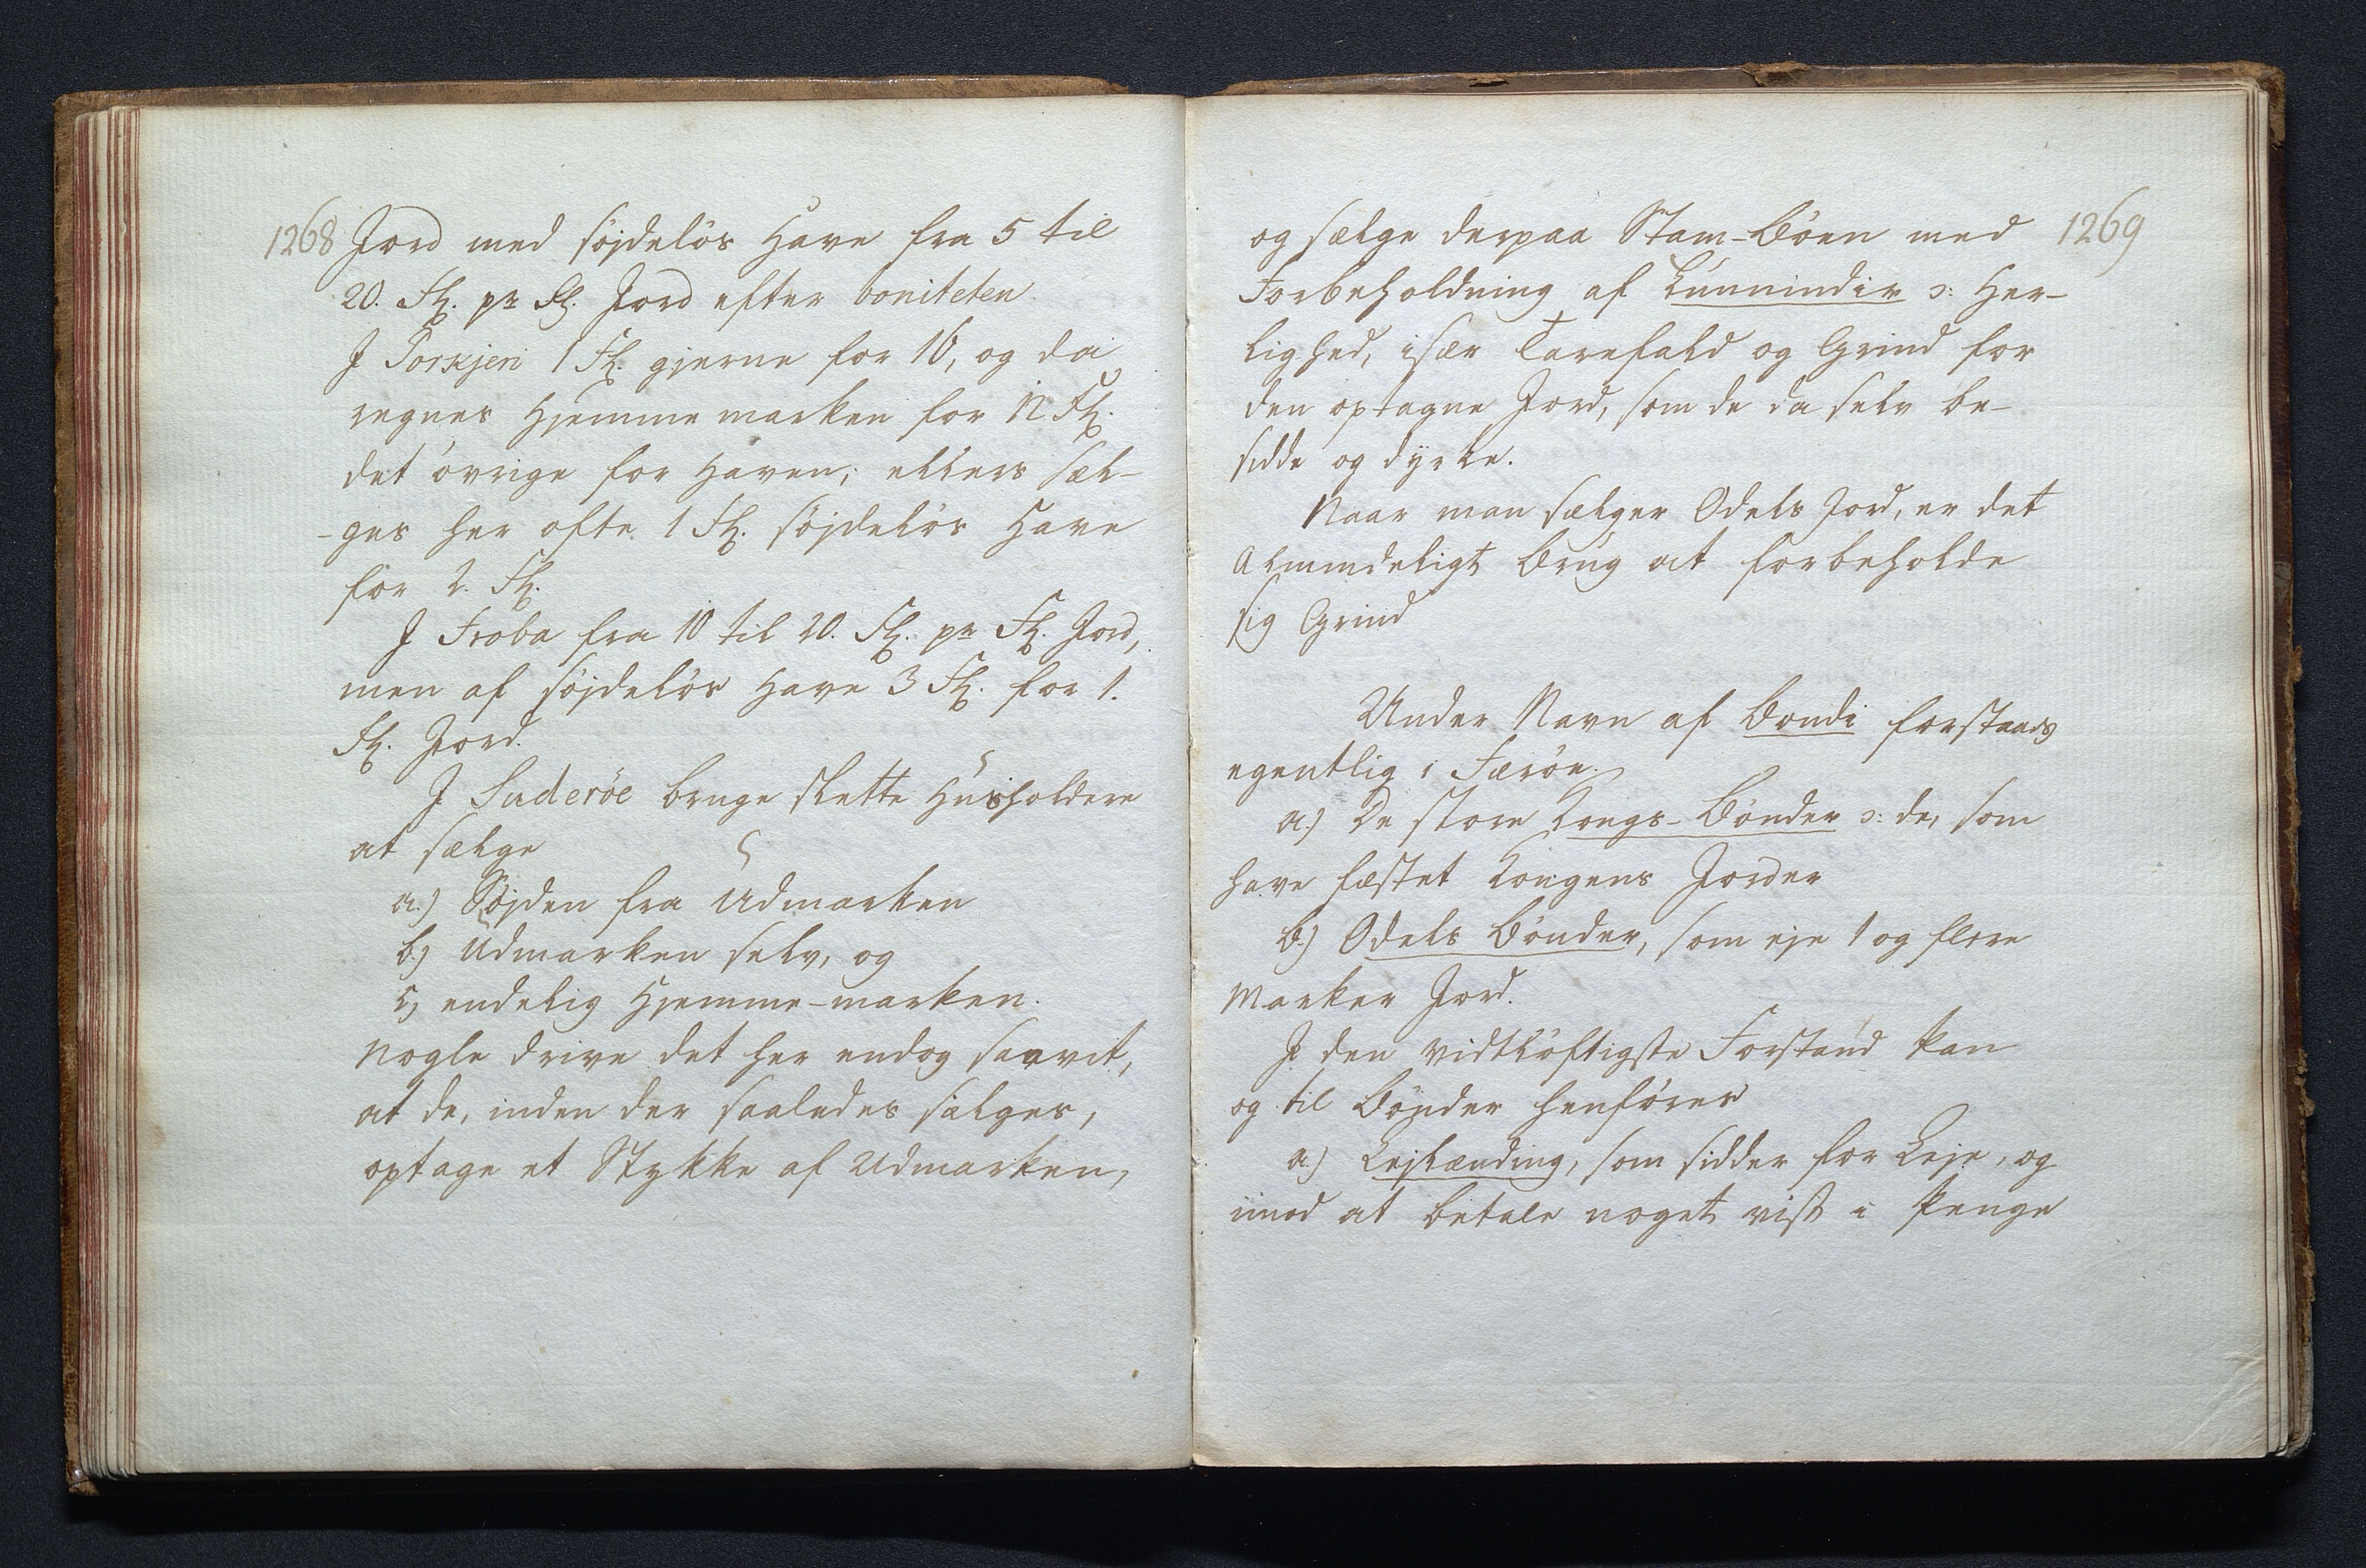 1268 Jord med söjdelös Have fra 5 til
20. Fl. pr Fl. Jord efter boniteten
J Porkjeri 1 Fl. gjerne for 16, og da
regnes Hjemmemarken for 12 Fl.
det övrige for Haven; ellers sæl-
-ges her ofte 1 Fl. söjdelös Have
for 2. Fl.
J Froba fra 10 til 20. Fl. pr Fl. Jord,
men af söjdelös Have 3 Fl. for 1.
Fl. Jord.
J Suderöe bruge slette Husholdere
at sælge
a.) Söjden fra Udmarken
b.) Udmarken selv, og
c, endelig Hjemme-marken.
Nogle drive det her endog saavit,
at de, inden der saaledes sælges,
optage et Stykke af Udmarken,
og sælge derpaa Stam-Böen med 1269
Forbeholdning af Lunnindir ɔ: Her-
lighed, især Tarefald og Grind for
den optagne Jord, som de da selv be-
sidde og dyrke.
Naar man sælger Odels Jord, er det
almindeligt Brug at forbeholde
sig Grind
Under Navn af Bondi forstaaes
egentlig i Færöe.
a.) De store Kongs-Bönder ɔ: de, som
have fæstet Kongens Jorder
b.) Odels Bönder, som eje 1 og flere
Marker Jord.
J den vidtlöftigste Forstand kan
og til Bönder henföres
a.) Lejlænding, som sidder for Leje, og
imod at betale noget vist i Penge